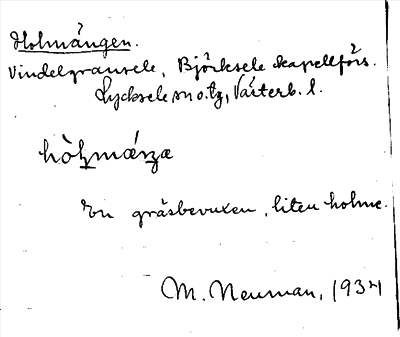 Holmängen.
Vindelgransele, Björksele kapellförs.
Lycksele sn o. tg, Västerb. l.
hòlmæŋæ
En gräsbevuxen, liten holme.
M. Neuman, 1934